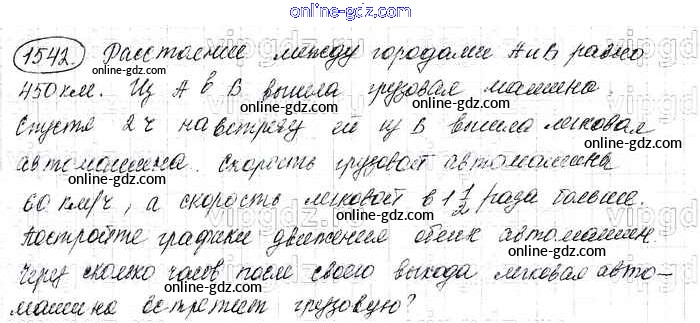 online-gdz.com
1542. Расстояние между городами А и В равно
450 км. Из А в В вышла грузовая машина.
online-gdz.com
Спустя 2 ч навстречу ей из В вышла легковая
автомашина. Скорость грузовой автомашины
online-gdz.com
60 км/ч, а скорость легковой в 1 1/2 раза больше.
Постройте графики движения обеих автомашин.
online-gdz.com
Через сколько часов после своего выхода легковая авто-
машина встретит грузовую?
online-gdz.com